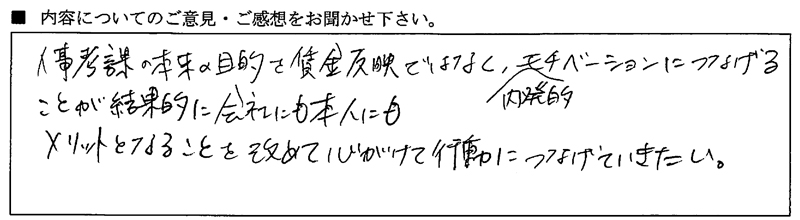 ■ 内容についてのご意見・ご感想をお聞かせ下さい。
人事考課の本来の目的を賃金反映ではなく、内発的モチベーションにつなげる
ことが結果的に会社にも本人にも
メリットとなることを改めて心がけて行動につなげていきたい。